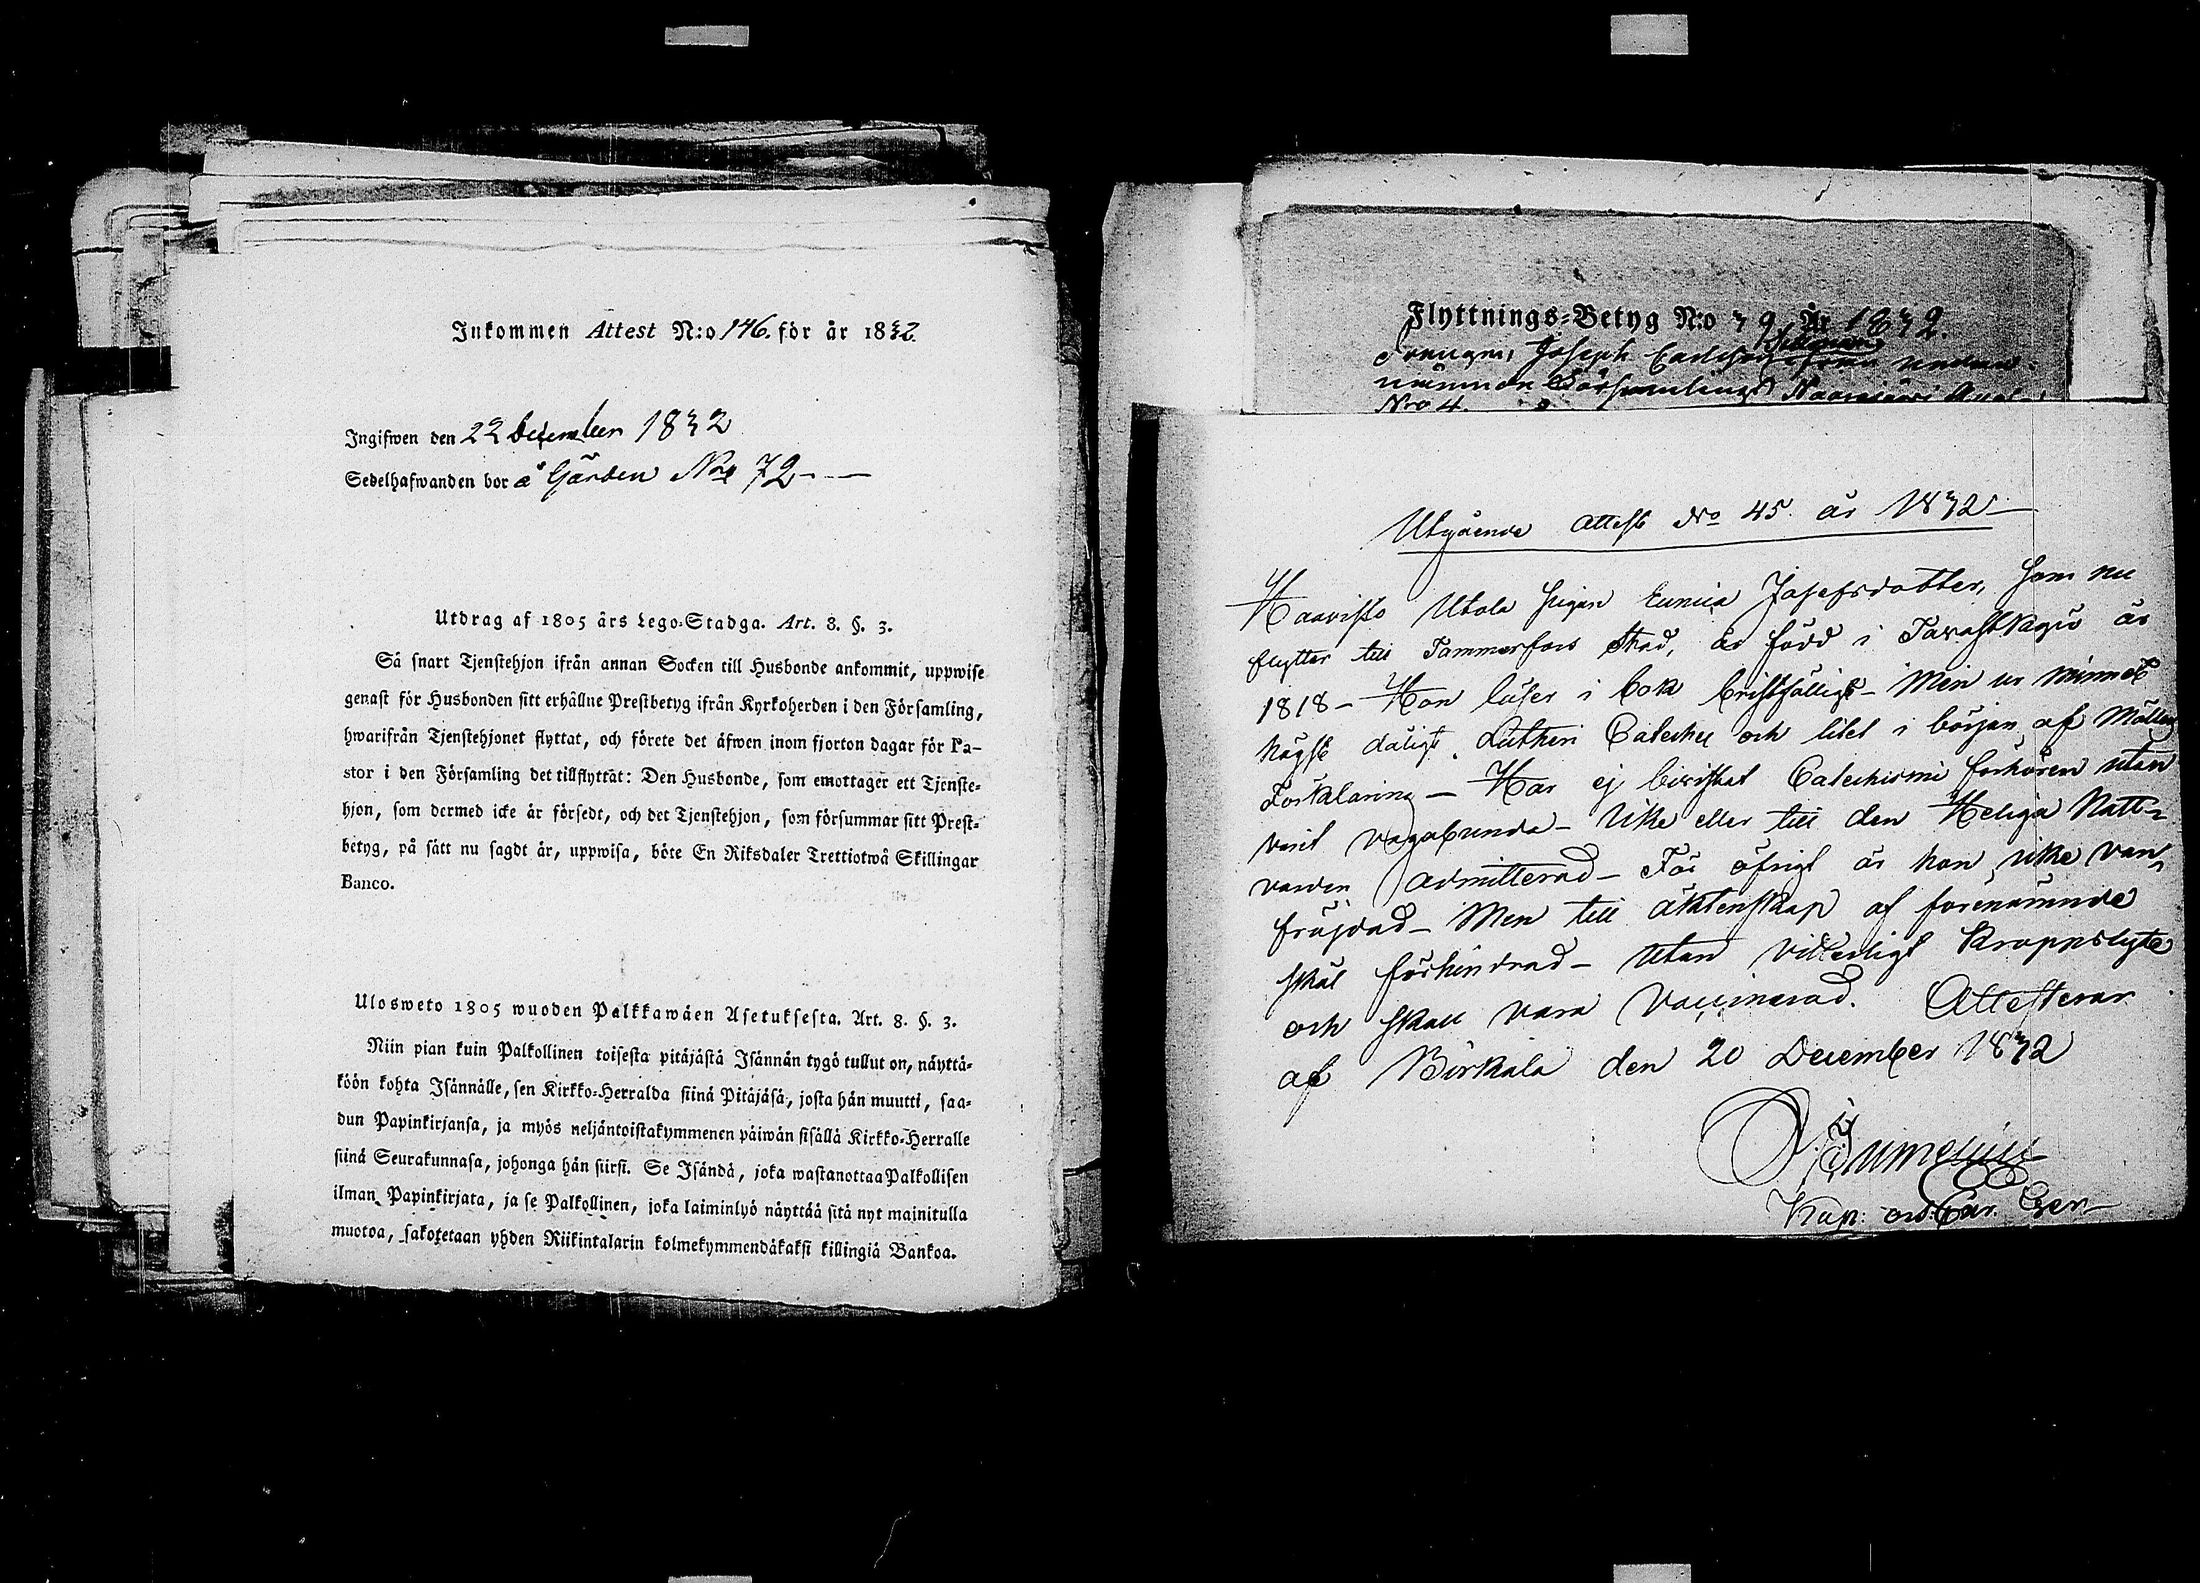 Inkommen Attest N:o 146. för år 1832.
Ingifwen den 22 December 1832
Sedelhafwanden bor å Gården No 72
Utdrag af 1805 års Lego-Stadga. Art. 8. §. 3.
Så snart Tjenstehjon ifrån annan Socken till Husbonde ankommit, uppwise
genast för Husbonden sitt erhållne Prestbetyg ifrån Kyrkoherden i den Församling,
hwarifrån Tjenstehjonet flyttat, och förete det äfwen inom fjorton dagar för Pa-
stor i den Församling det tillflyttat: Den Husbonde, som emottager ett Tjenste-
hjon, som dermed icke är försedt, och det Tjenstehjon, som försummar sitt Prest-
betyg, på sätt nu sagdt är, uppwisa, böte En Riksdaler Trettiotwå Skillingar
Banco.
Ulosweto 1805 wuoden Palkkawäen Asetuksesta. Art. 8. §. 3.
Niin pian kuin Palkollinen toisesta pitäjästä Isännän tygö tullut on, näyttä-
köön kohta Isännälle, sen Kirkko-Herralda siinä Pitäjäsä, josta hän muutti, saa-
dun Papinkirjansa, ja myös neljäntoistakymmenen päiwän sisällä Kirkko-Herralle
siinä Seurakunnasa, johonga hän siirsi. Se Isändä, joka wastanottaa Palkollisen
ilman Papinkirjata, ja se Palkollinen, joka laiminlyö näyttää sitä nyt mainitulla
muotoa, sakotetaan yhden Riikintalarin kolmekymmendäkaksi killingiä Bankoa.
Flyttnings-Betyg N:o 79 År 1832.
Drengen, Joseph Carlsson från nedan-
nämnde Församlings
No 4.
Utgående attest No 45 år 1832
Haavisto Utola pigan Eunica Josefsdotter, som nu
flyttar till Tammerfors Stad, är född i Tavastkyrö år
1818 – Hon läser i bok bristfälligt – Men ur minnet
högst dåligt Lutheri Cateches och litet i början af Möllers
Förklaring – Har ej bivistat Catechismi förhören utan
varit vagabunda – Icke eller till den Heliga Natt-
varden admitterad – För öfrigt är hon icke van-
fräjdad – Men till äktenskap af förenämnde
skäl förhindrad – Utan vitterligt kroppslyte
och skall vara vaccinerad. Attesterar
af Birkala den 20 December 1832
Kap: ord: